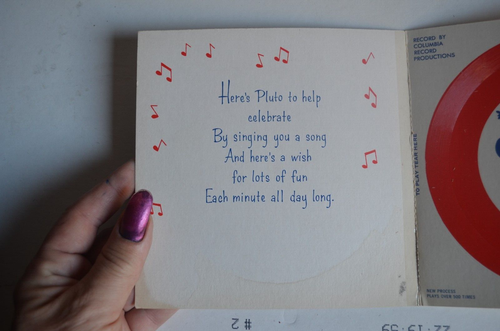 Here's Pluto to help
celebrate
By singing you a song
And here's a wish
for lots of fun
Each minute all day long.
RECORD BY
COLUMBIA
RECORD
PRODUCTIONS
TO PLAY TEAR HERE
NEW PROCESS
PLAYS OVER 500 TIMES
# 2